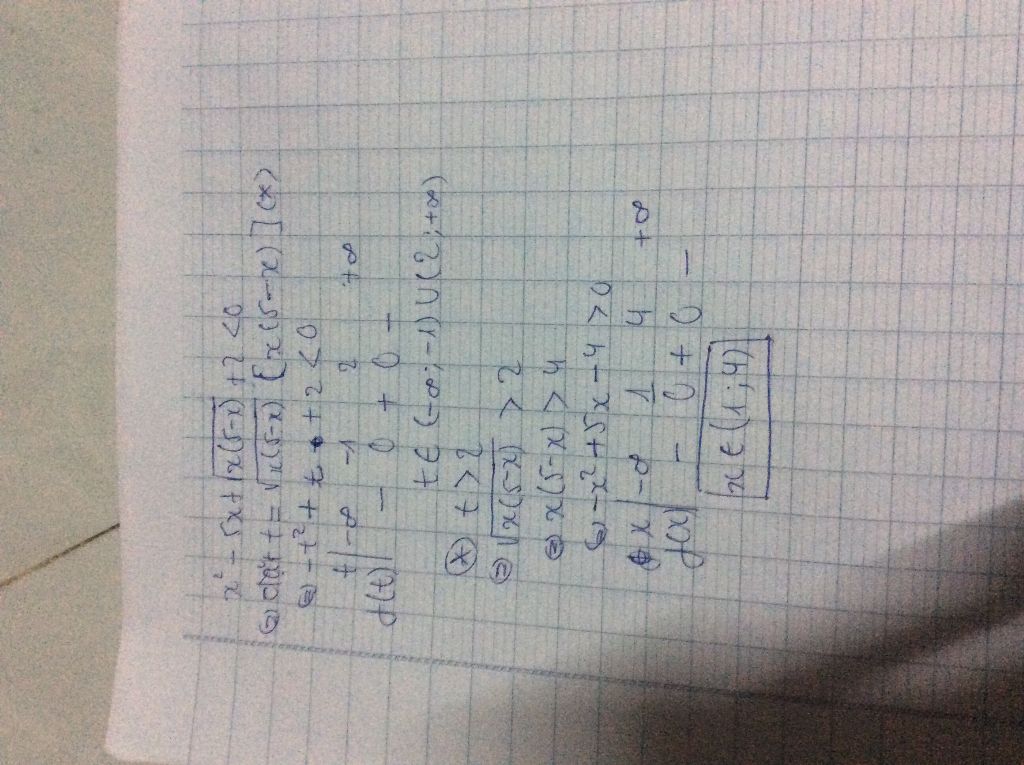 x² - 5x + √x(5-x) + 2 < 0
⇔ đặt t = √x(5-x) [x(5-x)] (x)
⇔ -t² + t + 2 < 0
t | -∞ -1 2 +∞
f(t) | - 0 + 0 -
t ∈ (-∞; -1) ∪ (2; +∞)
(*) t > 2
⇔ √x(5-x) > 2
⇔ x(5-x) > 4
⇔ -x² + 5x - 4 > 0
x | -∞ 1 4 +∞
f(x) | - 0 + 0 -
x ∈ (1; 4)